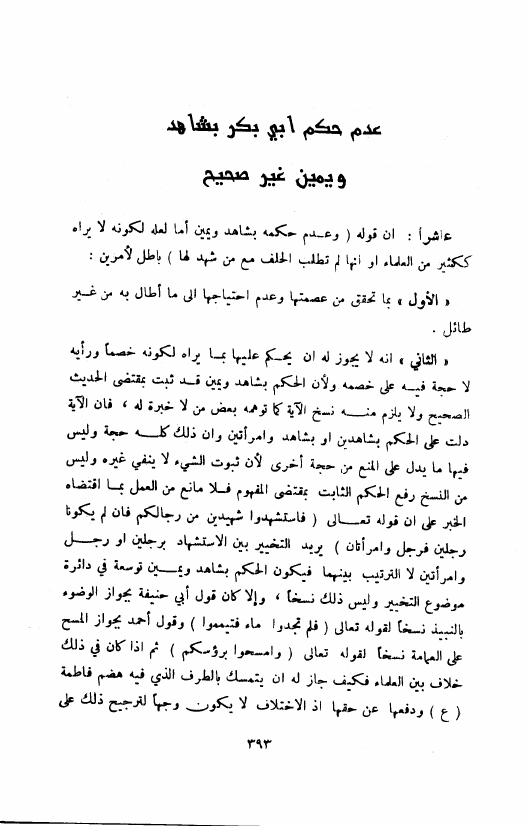 عدم حكم ابي بكر بشاهد
ويمين غير صحيح
عاشراً : ان قوله ( وعدم حكمه بشاهد ويمين أما لعله لكونه لا يراه
ككثير من العلماء او انها لم تطلب الحلف مع من شهد لها ) باطل لأمرين :
« الأول » بما تحقق من عصمتها وعدم احتياجها الى ما أطال به من غير
طائل .
« الثاني » انه لا يجوز له ان يحكم عليها بما يراه لكونه خصماً ورأيه
لا حجة فيه على خصمه ولأن الحكم بشاهد ويمين قد ثبت بمقتضى الحديث
الصحيح ولا يلزم منه نسخ الآية كما توهمه بعض من لا خبرة له ، فان الآية
دلت على الحكم بشاهدين او بشاهد وامرأتين وان ذلك كله حجة وليس
فيها ما يدل على المنع من حجة أخرى لأن ثبوت الشيء لا ينفي غيره وليس
من النسخ رفع الحكم الثابت بمقتضى المفهوم فلا مانع من العمل بما اقتضاه
الخبر على ان قوله تعالى ( فاستشهدوا شهيدين من رجالكم فان لم يكونا
رجلين فرجل وامرأتان ) يريد التخيير بين الاستشهاد برجلين او رجل
وامرأتين لا الترتيب بينهما فيكون الحكم بشاهد ويمين توسعة في دائرة
موضوع التخيير وليس ذلك نسخاً ، وإلا كان قول أبي حنيفة بجواز الوضوء
بالنبيذ نسخاً لقوله تعالى ( فلم تجدوا ماء فتيمموا ) وقول أحمد بجواز المسح
على العمامة نسخاً لقوله تعالى ( وامسحوا برؤسكم ) ثم اذا كان في ذلك
خلاف بين العلماء فكيف جاز له ان يتمسك بالطرف الذي فيه هضم فاطمة
( ع ) ودفعها عن حقها اذ الاختلاف لا يكون وجهاً لترجيح ذلك على
٣٩٣